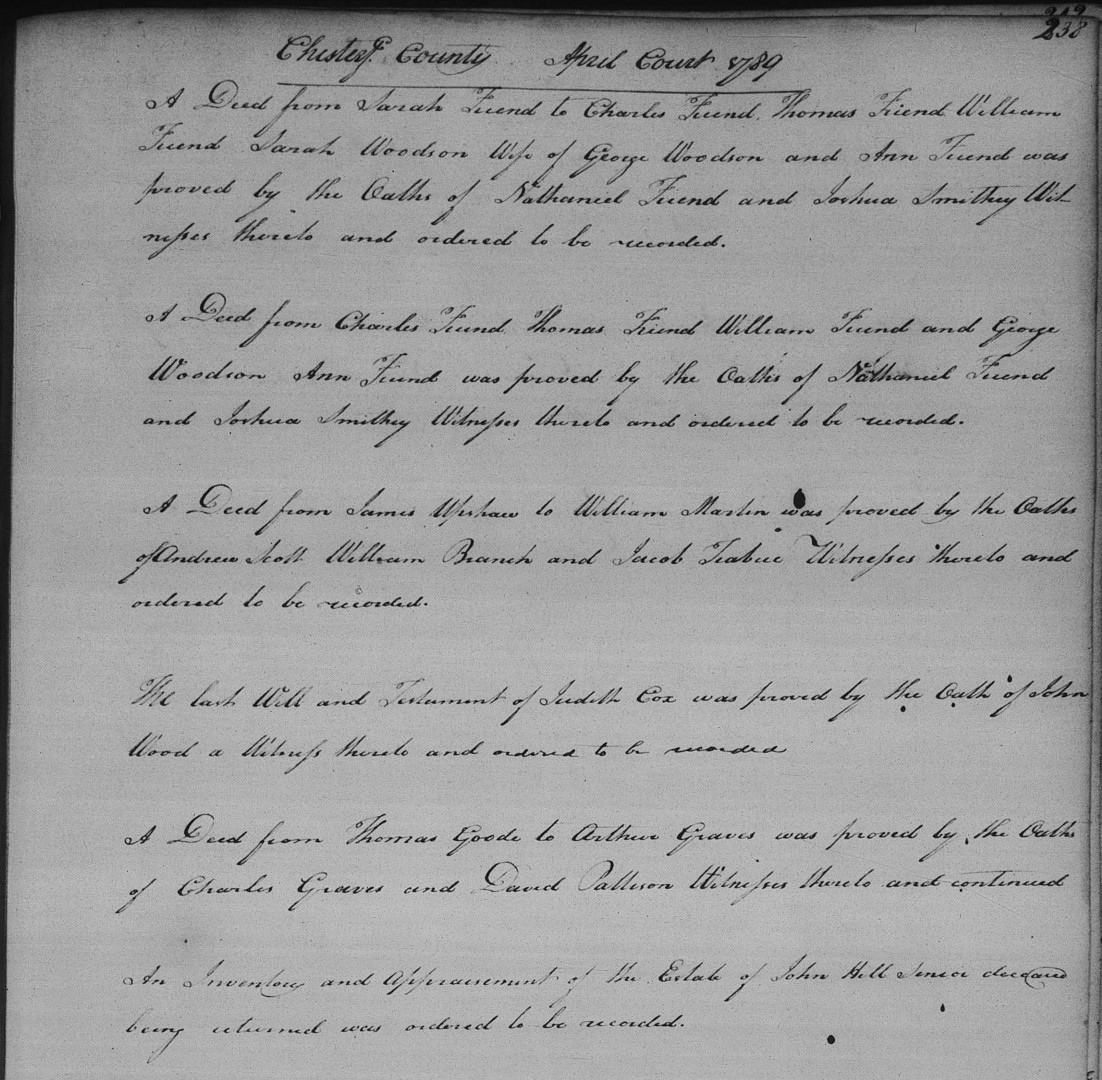 238
Chesterf. County April Court 1789
A Deed from Sarah Friend to Charles Friend, Thomas Friend William
Friend Sarah Woodson Wife of George Woodson and Ann Friend was
proved by the Oaths of Nathaniel Friend and Joshua Smithey Wit-
nesses thereto and ordered to be recorded.
A Deed from Charles Friend Thomas Friend William Friend and George
Woodson Ann Friend was proved by the Oaths of Nathaniel Friend
and Joshua Smithey Witnesses thereto and ordered to be recorded.
A Deed from James Upshaw to William Martin was proved by the Oaths
of Andrew Scott William Branch and Jacob Trabue Witnesses thereto and
ordered to be recorded.
The last Will and Testament of Judith Cox was proved by the Oath of John
Wood a Witness thereto and ordered to be recorded
A Deed from Thomas Goode to Arthur Graves was proved by the Oaths
of Charles Graves and David Patteson Witnesses thereto and continued
An Inventory and Appraisement of the Estate of John Hill Senior deceased
being returned was ordered to be recorded.